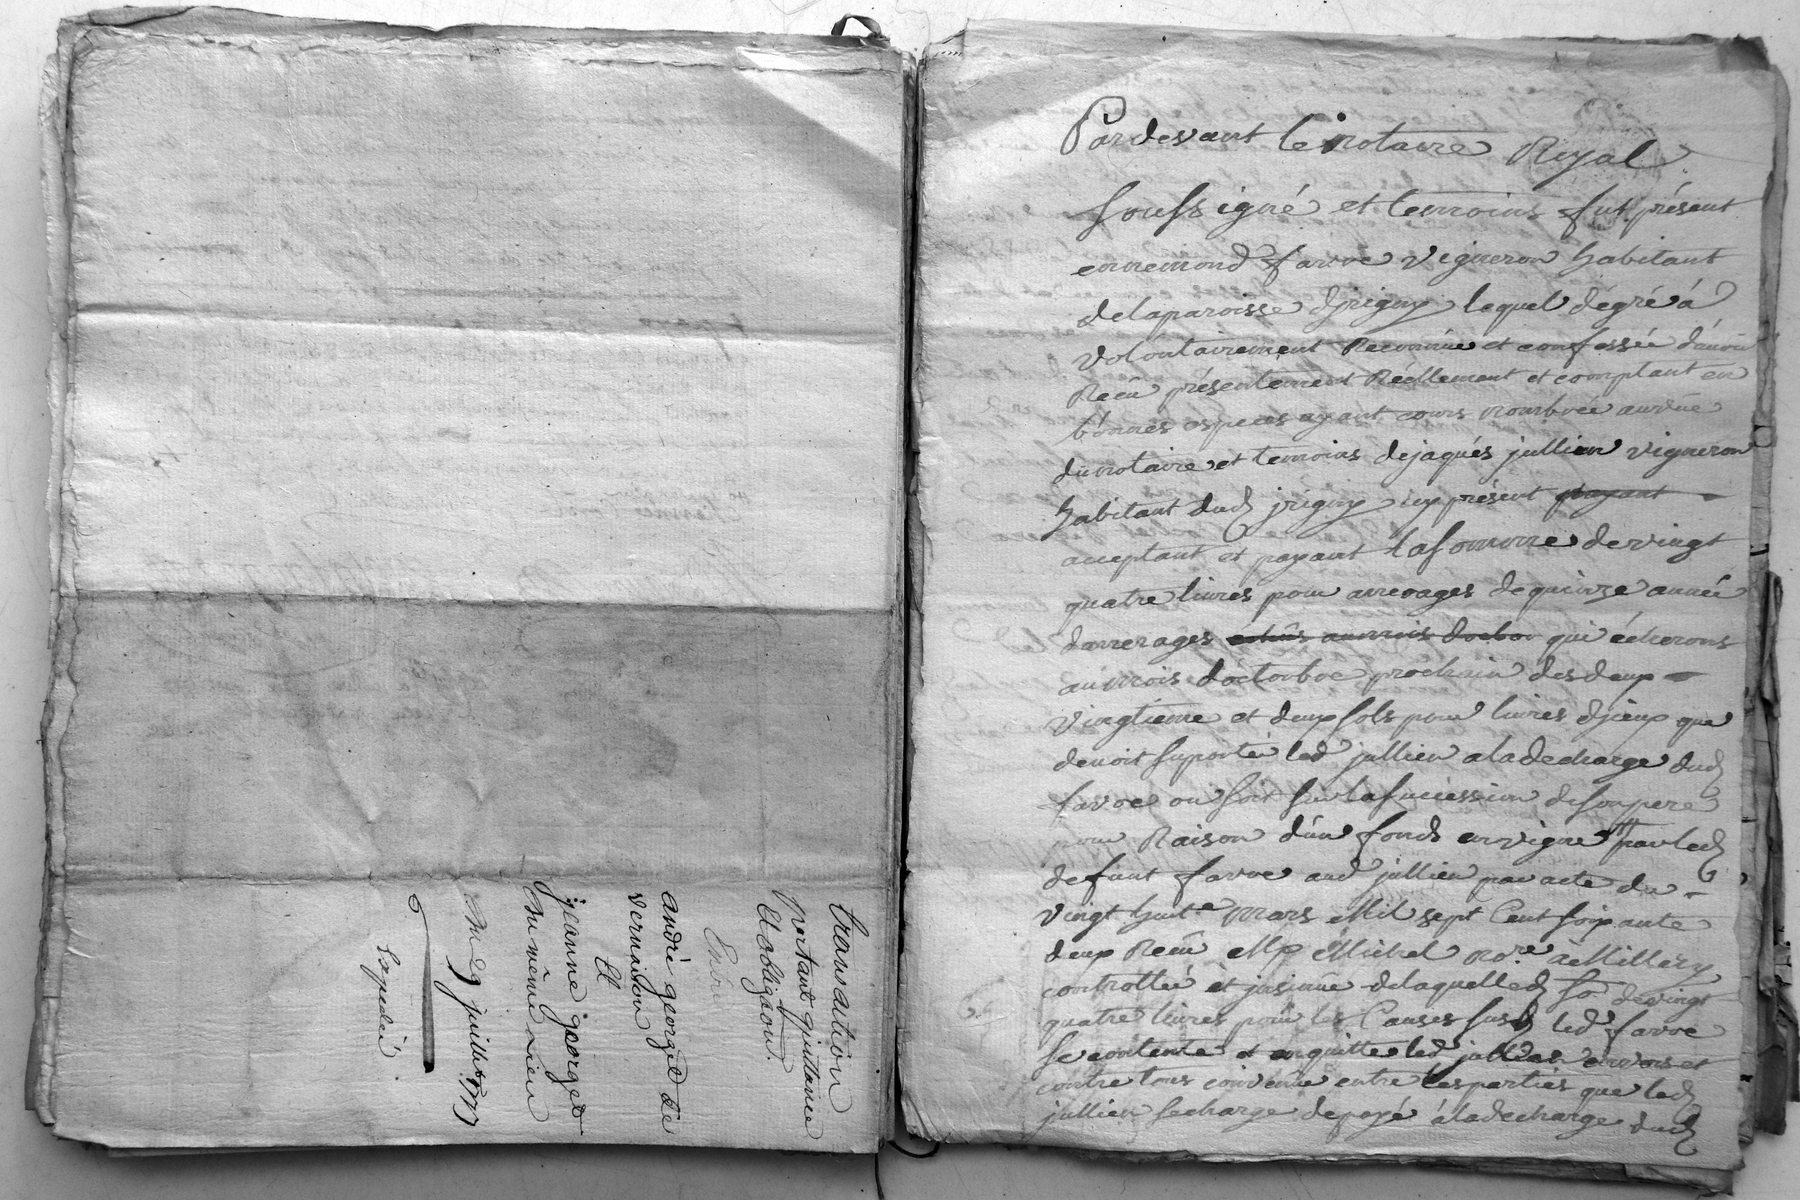 transaction
portant quittance
Et obligaon.
Entre
andré george dit
vernaison
Et
jeanne george
Du 29 juillet 1777
Expedié
Pardevant le notaire Royal
soussigné et temoins fut présent
ennemond favre vigneron habitant
delaparoisse djrigny lequel dégré à
volontairement Reconnüe et confessée d'avoir
Recû présentement Réellement et comptant en
bonnes especes ayant cours nombrée auvüe
dunotaire et temoins dejaqués jullien vigneron
habitant dud jrigny icy présent payant
acceptant et payant lasomme devingt
quatre livres pour arreages dequinze année
darrerages echûs aumois doctbor qui écherons
aumois doctonbre prochain desdeux
vingtieme et deux sols pour livres djceux que
devoit suporté led jullien aladecharge dud
favre ou soit sur lasuccession desonpere
pour Raison d'un fonds envigne par led
defunt favre aud jullien par acte du
vingt huite mars Mil sept Cent soixante
deux Recû Me Michel nore. àMillery
controllée et jnsinué delaquelled so devingt
quatre livres pour les Causes susd led favre
secontente et enquitte led jullien envers et
contre tous convenüe entre lesparties que led
jullien secharge depayé àladecharge dud